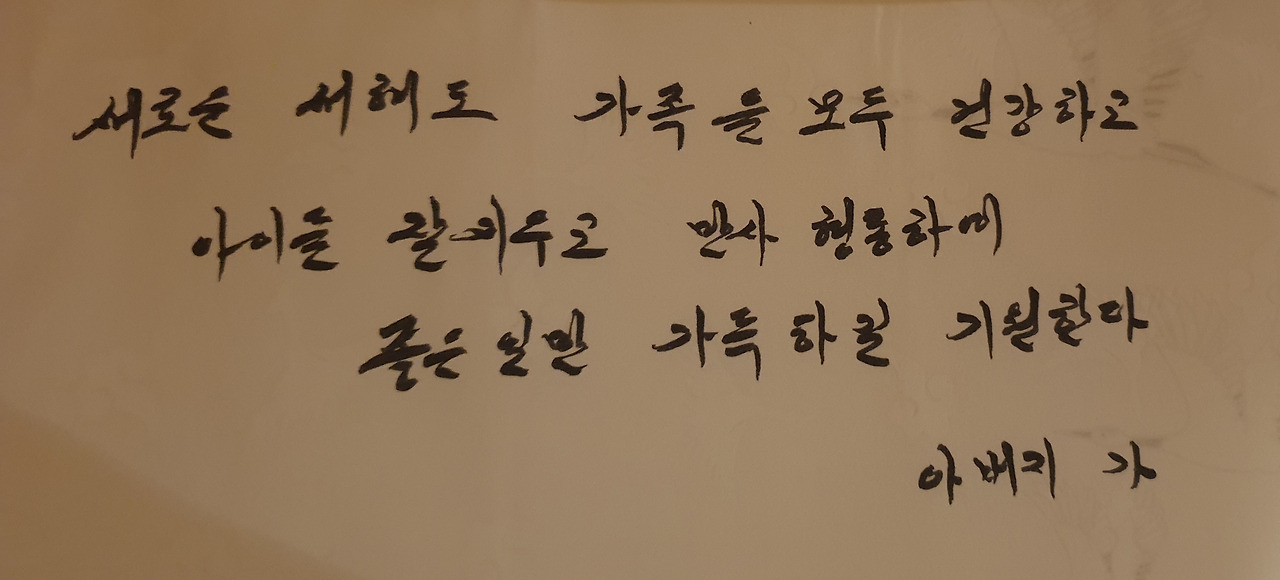 새로운 새해도 가족을 모두 건강하고
아이들 잘 키우고 만사 형통하며
좋은 일만 가득하길 기원한다
아버지가